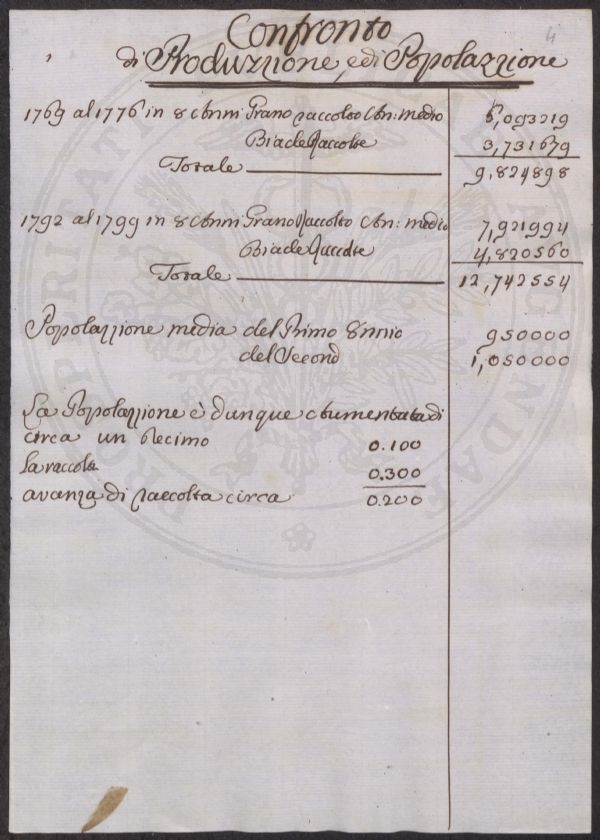 4
Confronto
di Produzzione, e di Popolazzione
1769 al 1776 in 8 Anni Grano raccolto An: medio 6,093219
Biade Raccolte 3,731679
Totale 9,824898
1792 al 1799 in 8 Anni Grano Raccolto An: medio 7,921994
Biade Raccolte 4,820560
Totale 12,742554
Popolazzione media del Primo 8nnio 950000
del Second 1,050000
La Popolazzione è dunque Aumentata di
circa un Decimo 0.100
la raccolta 0.300
avanza di raccolta circa 0.200
PROSPERITATI
AUGENDAE